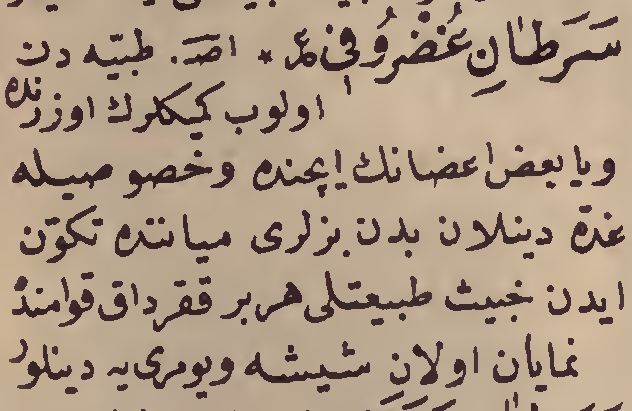 سَرَطَانِ غُضْرُوفِی ع * اصـ. طبیّه دن
اولوب كمیكلرك اوزرنده
ویا بعض اعضانك ایچنده وخصوصیله
غدّه دینلان بدن بزلری میاننده تكوّن
ایدن خبیث طبیعتلی هربر ققرداق قوامنده
نمایان اولانِ شیشه ویومری یه دینلور